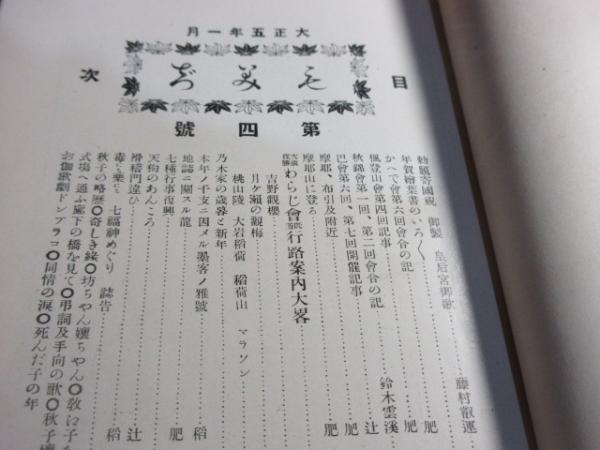 大正五年一月
もみぢ
第四號
目次
勅題寄國祝 御製 皇后宮御歌
年賀繪葉書のいろ〱 藤村叡運
かへで會第六回會合の記 肥
楓登山會第四回記事 肥
秋錦會第一回、第二回會合の記 鈴木雲溪
巴會第六回、第七回開催記事 辻
摩耶、布引及附近 肥
摩耶山に登る 肥
わらじ會 行路案内大畧
吉野觀櫻
月ケ瀬の觀梅
桃山陵 大岩稻荷 稻荷山 マラソン
乃木家の歳暮と新年
本年ノ干支ニ因メル墨客ノ雅號 稻
地誌ニ關スル龍
七種行事復興 肥
天狗のあんころ
滑稽門違ひ 辻
毒と藥と 七福神めぐり 誌告 稻
秋子の略歴〇奇しき緣〇坊ちやん孃ちやん〇敎に子
式場へ通ふ廊下の橋を見て〇弔詞及手向の歌〇秋子
お伽歌劇ドンブラコ〇同情の涙〇死んだ子の年